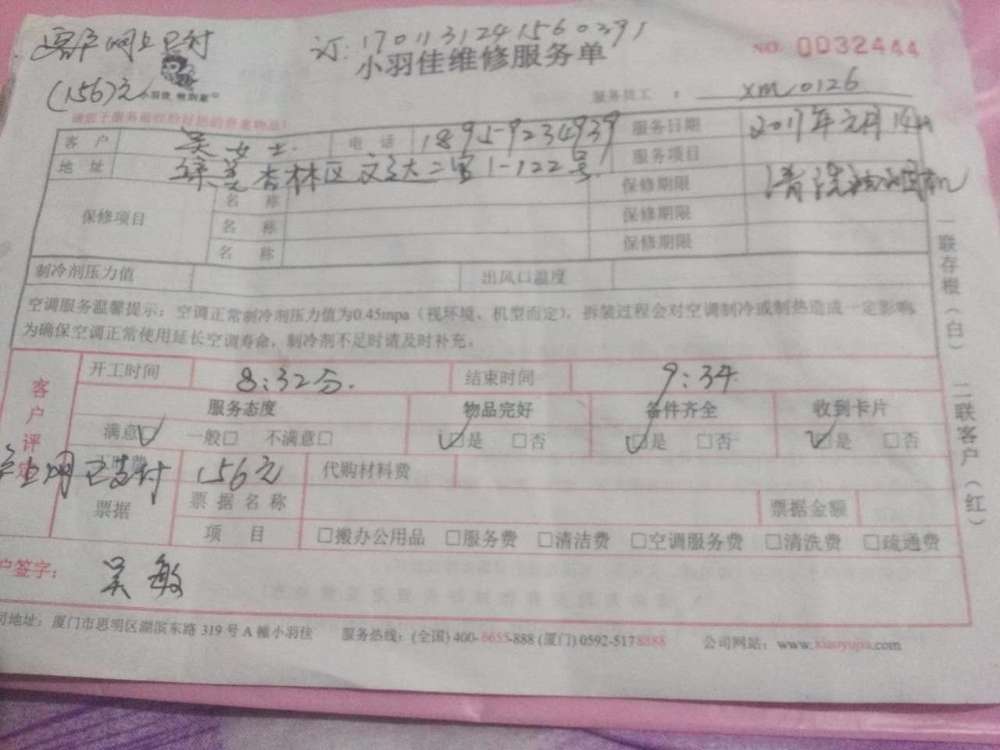 客户网上已付 订:17011312415602391
小羽佳维修服务单 NO. 0032444
(156)元 服务员工: xm0126
客户 吴女士 电话 服务日期 2017年元月14日
地址 集美杏林区 1-122号 服务项目 清洗
保修项目 名称 保修期限
名称 保修期限
名称 保修期限
制冷剂压力值 出风口温度
空调服务温馨提示:空调正常制冷剂压力值为0.45mpa(视环境、机型而定),拆装过程会对空调制冷或制热造成一定影响
为确保空调正常使用延长空调寿命,制冷剂不足时请及时补充。
客户评定
开工时间 8:32分. 结束时间 9:34
服务态度 物品完好 备件齐全 收到卡片
满意 一般□ 不满意□ 是 □否 是 □否 是 □否
网已支付 156元 代购材料费
票据 票据名称 票据金额
项目 □搬办公用品 □服务费 □清洁费 □空调服务费 □清洗费 □疏通费
户签字: 吴敏
司地址:厦门市思明区湖滨东路 319 号 A 幢小羽佳 服务热线:(全国) 400-6655-888 (厦门) 0592-5178888 公司网站:www.xiaoyujia.com
一联存根(白) 二联客户(红)